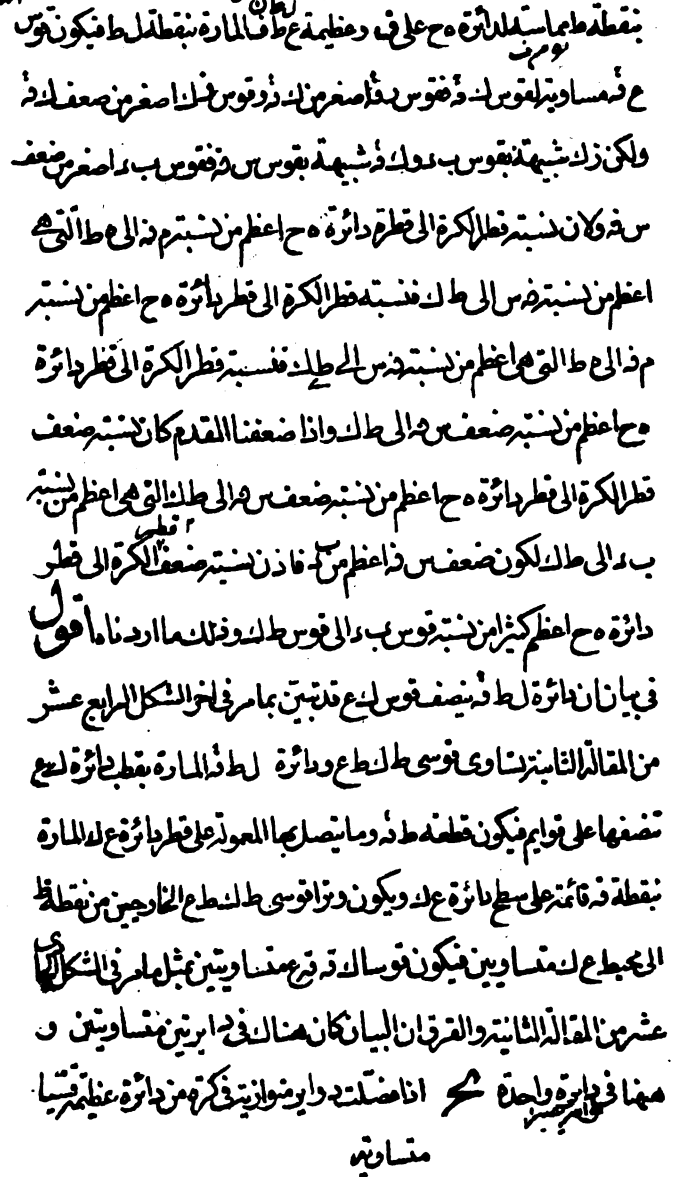 بنقطة ط مماسة لدائرة ه ح على ف وعظيمة ع ط ف المارة بنقطة ل ط فيكون قوس
ع ف مساوية لقوس ك ف فقوس ف اصغر من ك ف وقوس ك اصغر من ضعف ك ف
ولكن ز ك شبيهة بقوس ب د و ك ف شبيهة بقوس س ف فقوس ب د اصغر من ضعف
س ف ولان نسبة قطر الكرة الى قطر دائرة ه ح اعظم من نسبة م ف الى ه ط التى هى
اعظم من نسبة ف س الى ط ك فنسبة قطر الكرة الى قطر دائرة ه ح اعظم من نسبة
م ف الى ه ط التى هى اعظم من نسبة ف س الى ط ك فنسبة قطر الكرة الى قطر دائرة
ه ح اعظم من نسبة ضعف س ف الى ط ك واذا ضعفنا المقدم كان نسبة ضعف
قطر الكرة الى قطر دائرة ه ح اعظم من نسبة ضعف س ف الى ط ك التى هى اعظم من نسبة
ب د الى ط ك لكون ضعف س ف اعظم من ب د فاذن نسبة ضعف قطر الكرة الى قطر
دائرة ه ح اعظم كثيرا من نسبة قوس ب د الى قوس ط ك وذلك ما اردناه اقول
فى بيان ان دائرة ل ط ف ينصف قوس ك ع قد تبين بما مر فى اخر الشكل الرابع عشر
من المقالة الثانية تساوى قوسى ط ك ط ع ودائرة ل ط ف المارة بقطب دائرة ك ع
تنصفها على قوايم فيكون قطعة ط ف وما يتصل بها المعمولة على قطر دائرة ع ك المارة
بنقطة ف قائمة على سطح دائرة ع ك ويكون وترا قوسى ط ك ط ع الخارجين من نقطة ط
الى محيط ع ك متساويين فيكون قوسا ك ف ف ع متساويتين بمثل ما مر فى الشكل
عشر من المقالة الثانية والفرق ان البيان كان هناك فى دايرتين متساويتين و
هيهنا فى دايرة واحدة اذا فصلت دواير متوازية فى كرة من دائرة عظيمة قسيا
متساوية